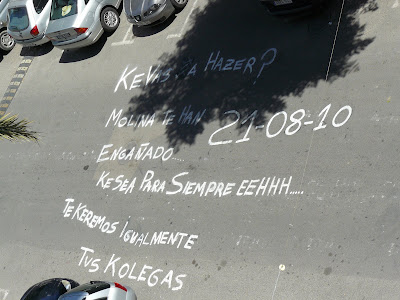 KE VAS A HAZER?
MOLINA TE HAN
21-08-10
ENGAÑADO....
KE SEA PARA SIEMPRE EEHHH.....
TE KEREMOS IGUALMENTE
TUS KOLEGAS